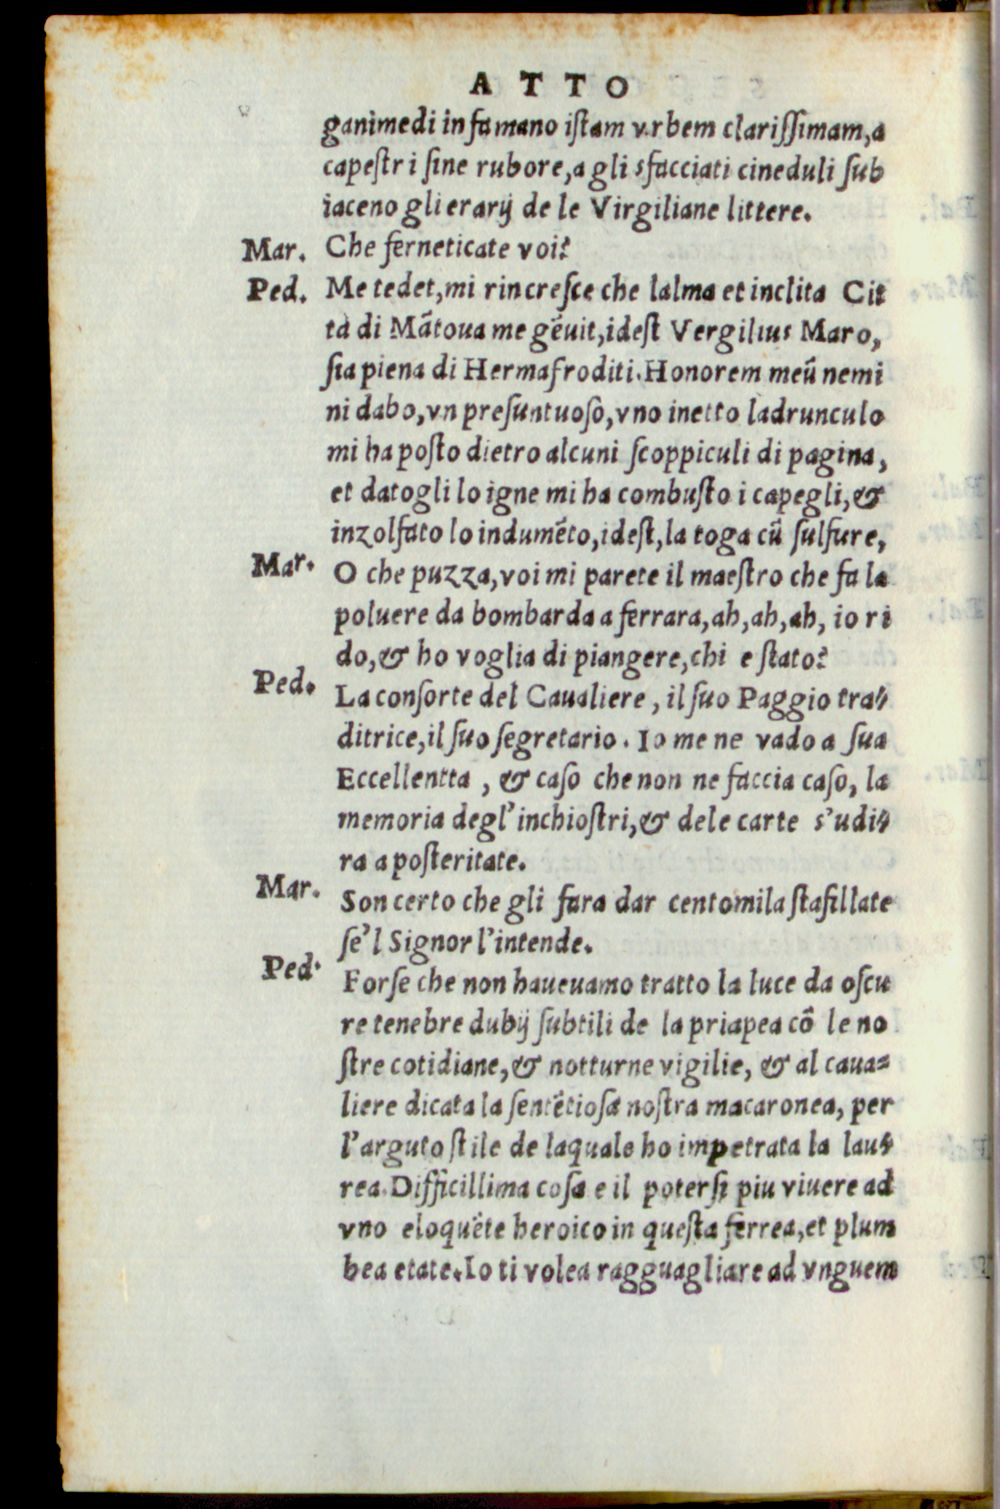 ATTO
ganimedi infamano iſtam vrbem clariſſimam,a
capeſtri ſine rubore,a gli sfacciati cineduli ſub
iaceno gli erarij de le Virgiliane littere.
Mar. Che ferneticate voi?
Ped. Me tedet,mi rincreſce che lalma et inclita Cit
tà di Mãtoua me gẽuit,ideſt Vergilius Maro,
ſia piena di Hermafroditi.Honorem meũ nemi
ni dabo,vn preſuntuoſo,vno inetto ladrunculo
mi ha poſto dietro alcuni ſcoppiculi di pagina,
et datogli lo igne mi ha combuſto i capegli,&
inzolfato lo indumẽto,ideſt,la toga cũ ſulfure,
Mar. O che puzza,voi mi parete il maeſtro che fa la
poluere da bombarda a ferrara,ah,ah,ah, io ri
do,& ho voglia di piangere,chi e ſtato?
Ped. La conſorte del Caualiere , il ſuo Paggio tra⸗
ditrice,il ſuo ſegretario. Io me ne vado a ſua
Eccellentta , & caſo che non ne faccia caſo, la
memoria degl'inchioſtri,& dele carte s'udi⸗
ra a poſteritate.
Mar. Son certo che gli fara dar centomila ſtafillate
ſe'l Signor l'intende.
Ped. Forſe che non haueuamo tratto la luce da oſcu
re tenebre dubij ſubtili de la priapea cõ le no
ſtre cotidiane,& notturne vigilie, & al caua⸗
liere dicata la ſentẽtioſa noſtra macaronea, per
l'arguto ſtile de laquale ho impetrata la lau⸗
rea.Difficillima coſa e il poterſi piu viuere ad
vno eloquẽte heroico in queſta ferrea,et plum
bea etate.Io ti volea ragguagliare ad vnguem